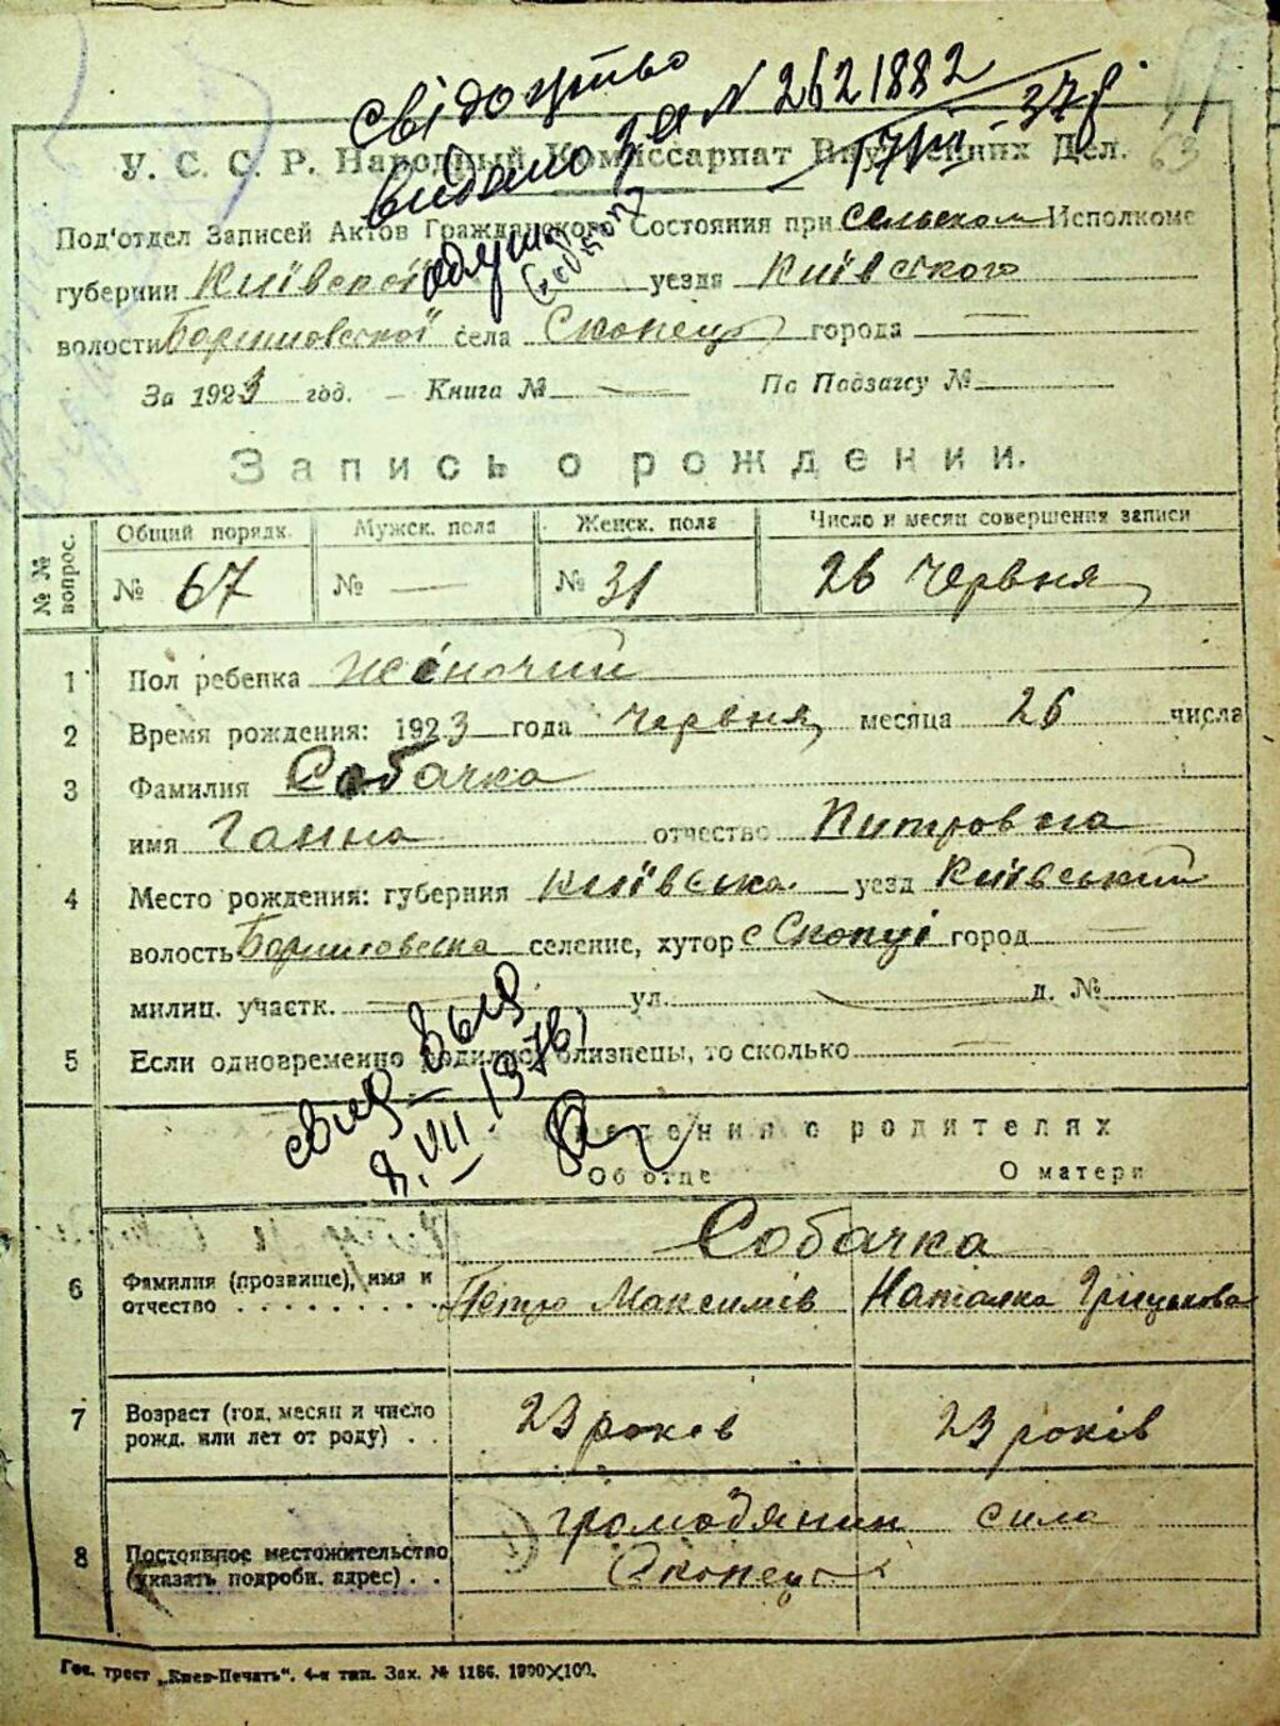 свідоцтво
видано за N 2621882
37р.
63
У. С. С. Р. Народный Комиссариат Внутренних Дел.
Под'отдел Записей Актов Гражданского Состояния при сельском Исполкоме
губернии Київской уезда Київского
волости села Скопец города —
За 1923 год. — Книга № — По Подзагсу №
Запись о рождении.
№ № вопрос. Общий порядк. Мужск. пола Женск. пола Число и месяц совершения записи
№ 67 № — № 31 26 Червня
1 Пол ребенка жіночий
2 Время рождения: 1923 года червня месяца 26 числа
3 Фамилия Собачка
имя Ганна отчество Питровна
4 Место рождения: губерния Київська уезд Київський
волость селение, хутор с Скопці город —
милиц. участк. — ул. — д. №
5 Если одновременно родились близнецы, то сколько —
свид. выд.
VII.1976
Сведения о родителях
Об отце О матери
Собачка
6 Фамилия (прозвище), имя и отчество Петро Максимів Наталка Грицькова
7 Возраст (год, месяц и число рожд. или лет от роду) 23 років 23 років
8 Постоянное местожительство (указать подробн. адрес) громодянин сила
Скопець
Гос. трест „Киев-Печать". 4-я тип. Зак. № 1186. 1000×100.